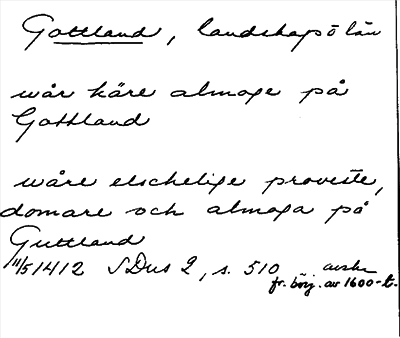 Gottland, landskap o län
wår käre almoge på
Gottland
wåre elschelige proveste,
domare och almoga på
Guttland
11/5 1412 SDns 2, s. 510 avskr.
fr. börj. av 1600-t.